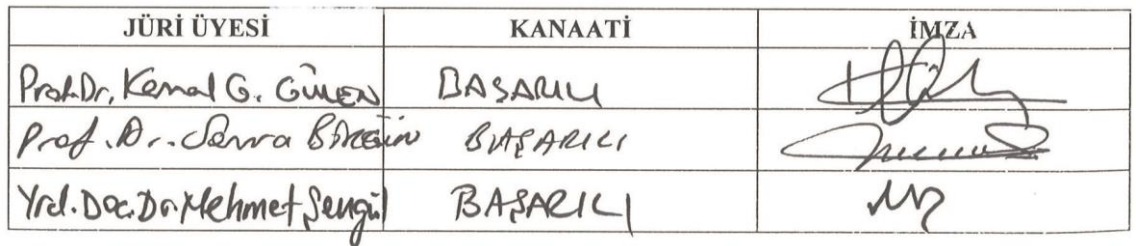 JÜRİ ÜYESİ KANAATİ İMZA
Prof.Dr. Kemal G. BAŞARILI
Prof. Dr. Semra BAŞARILI
Yrd. Doç. Dr. Mehmet Şengül BAŞARILI